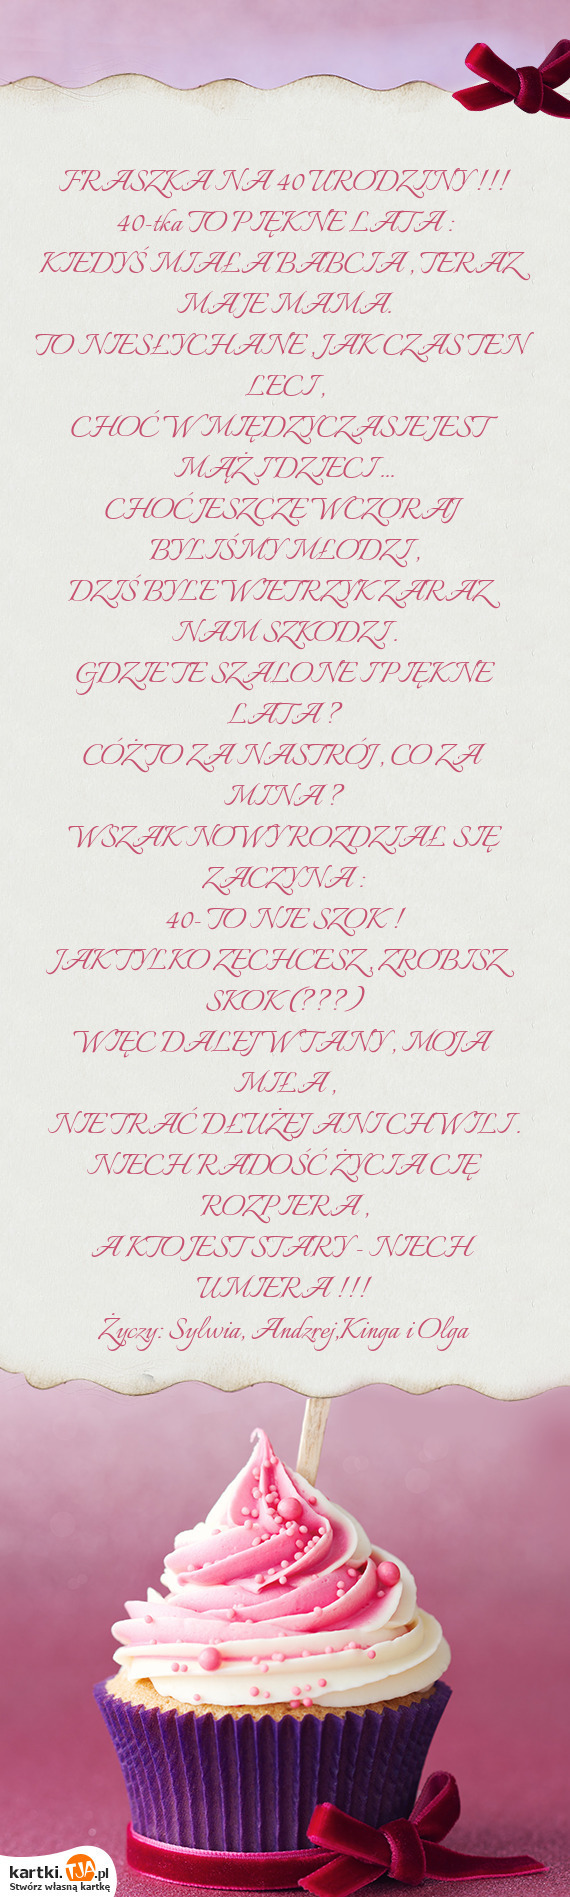 FRASZKA NA 40 URODZINY !!!
40-tka TO PIĘKNE LATA :
KIEDYŚ MIAŁA BABCIA , TERAZ
MA JE MAMA.
TO NIESŁYCHANE , JAK CZAS TEN
LECI ,
CHOĆ W MIĘDZYCZASIE JEST
MĄŻ I DZIECI ...
CHOĆ JESZCZE WCZORAJ
BYLIŚMY MŁODZI ,
DZIŚ BYLE WIETRZYK ZARAZ
NAM SZKODZI .
GDZIE TE SZALONE I PIĘKNE
LATA ?
CÓŻ TO ZA NASTRÓJ , CO ZA
MINA ?
WSZAK NOWY ROZDZIAŁ SIĘ
ZACZYNA :
40- TO NIE SZOK !
JAK TYLKO ZECHCESZ , ZROBISZ
SKOK (???)
WIĘC DALEJ W TANY , MOJA
MIŁA ,
NIE TRAĆ DŁUŻEJ ANI CHWILI .
NIECH RADOŚĆ ŻYCIA CIĘ
ROZPIERA ,
A KTO JEST STARY - NIECH
UMIERA !!!
Życzy: Sylwia, Andzrej,Kinga i Olga
kartki.TJA.pl
Stwórz własną kartkę